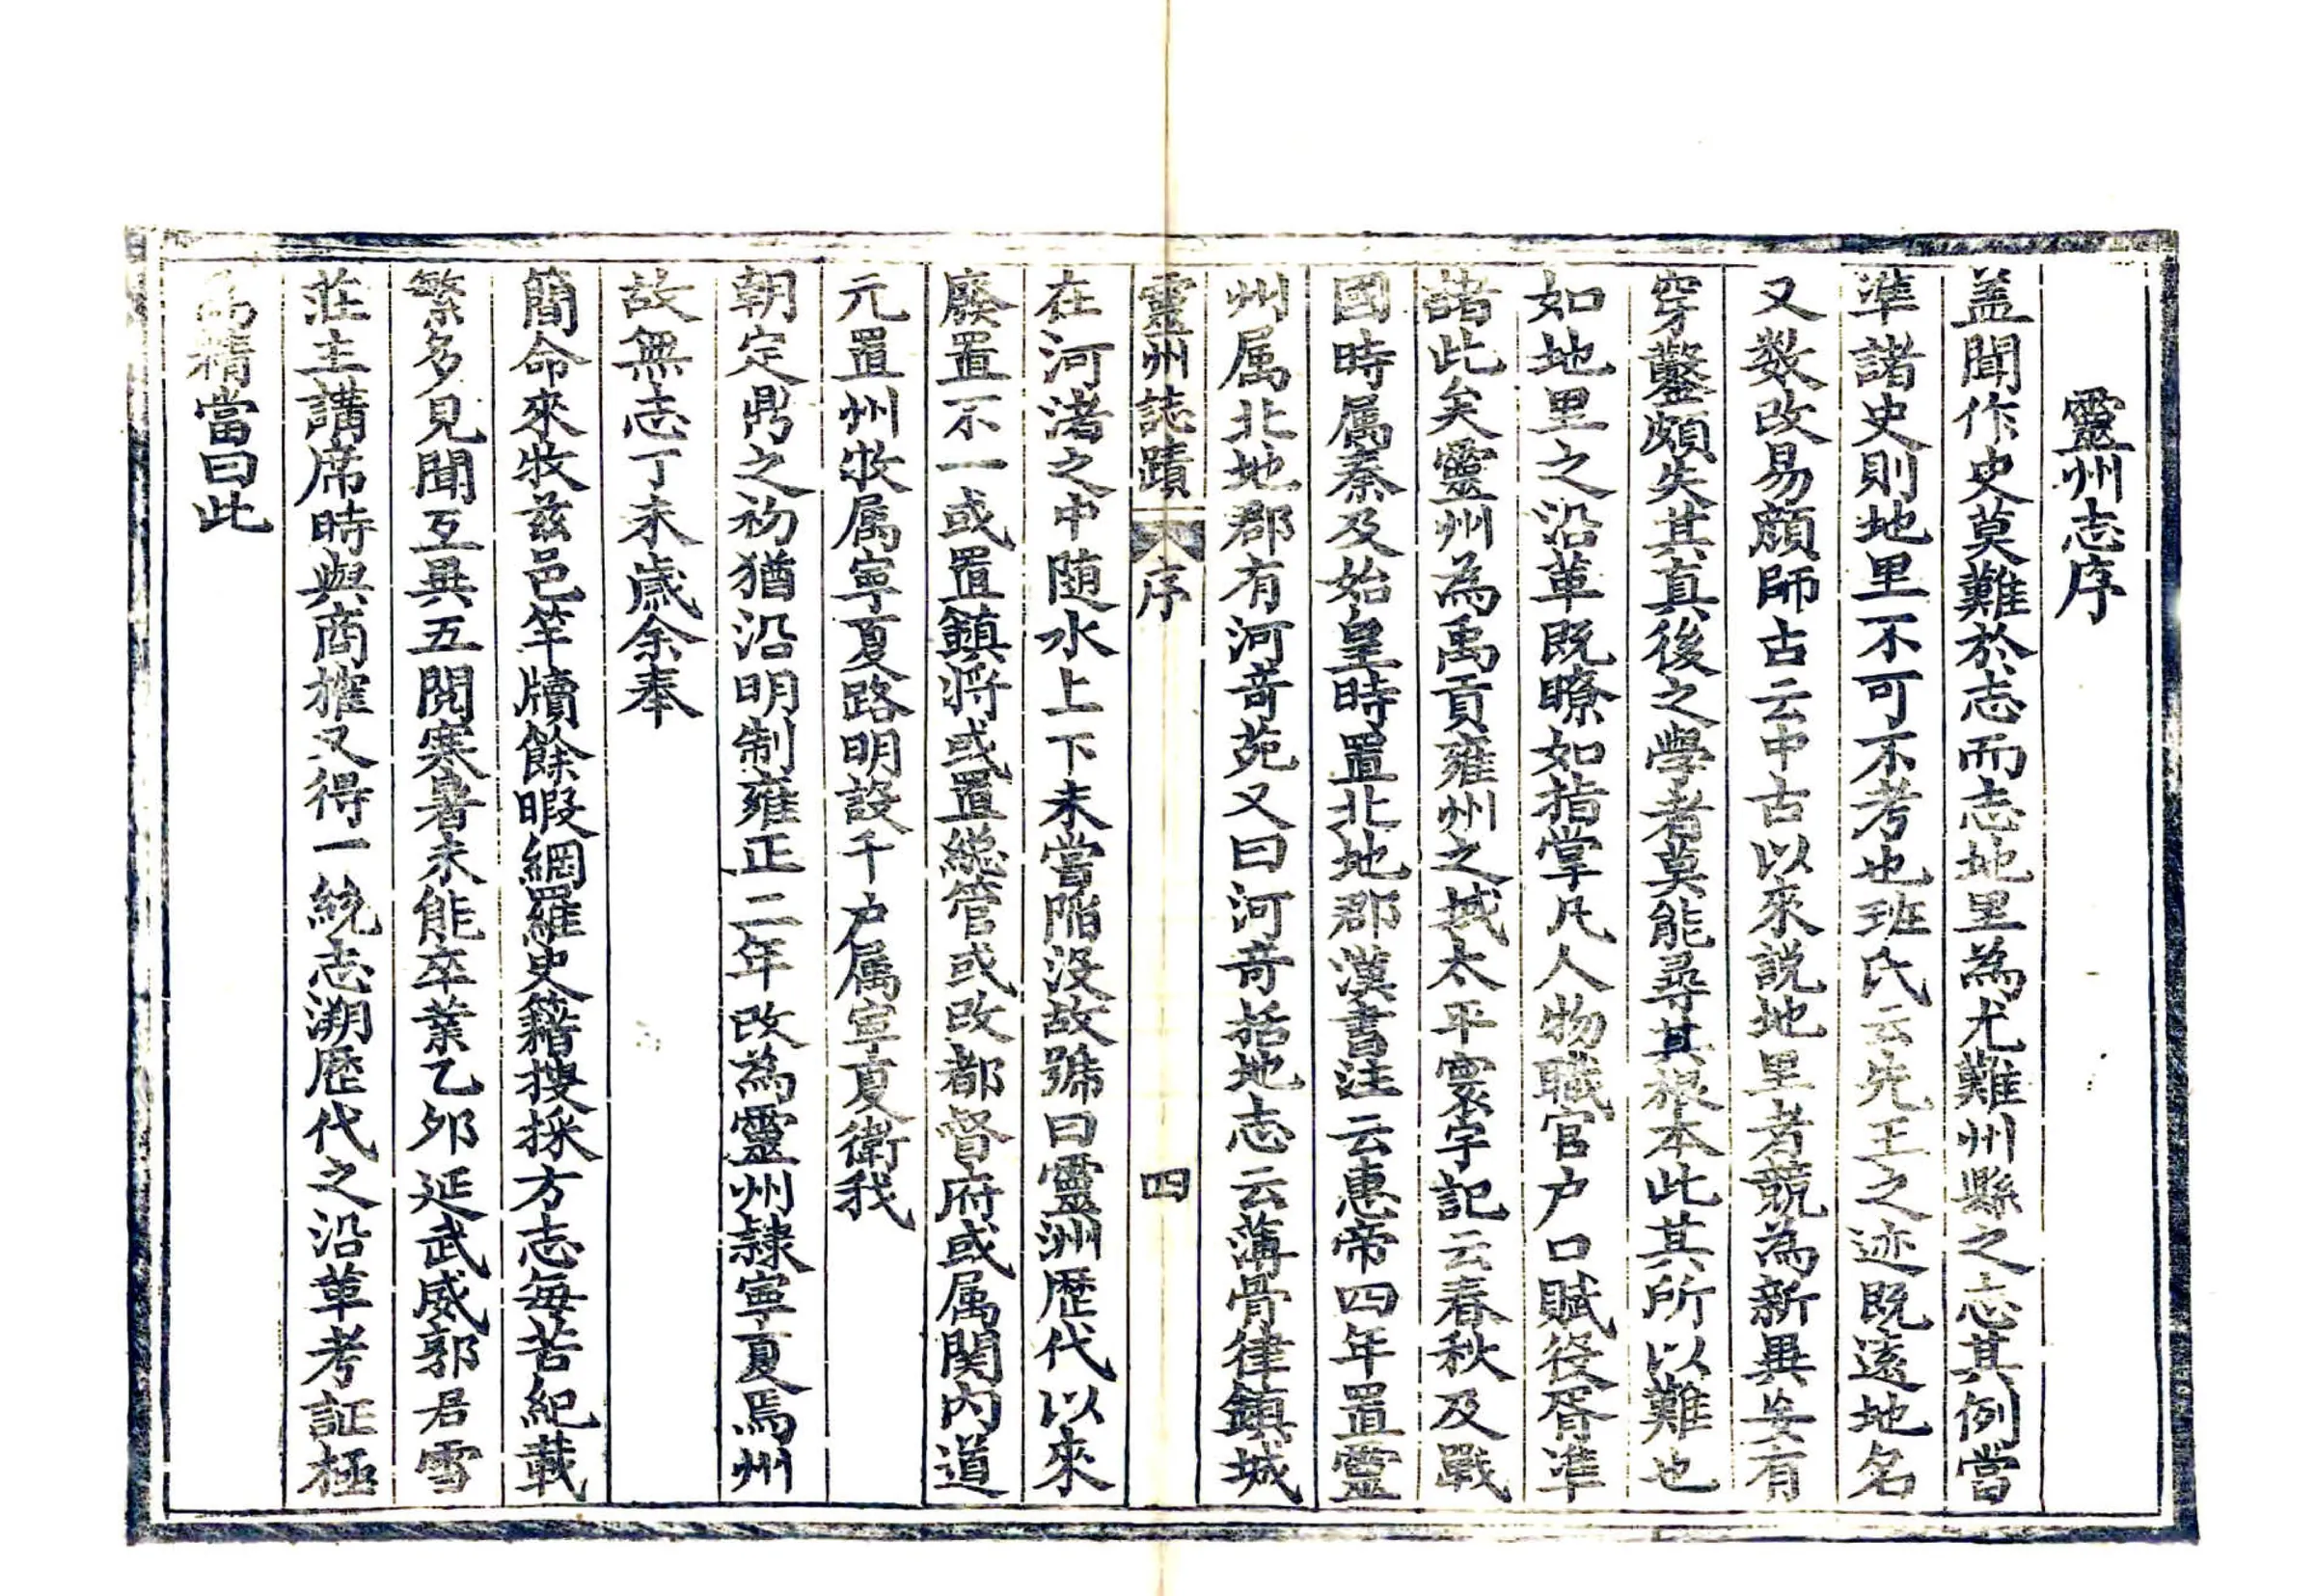 靈州志序
盖聞作史莫難於志而志地里為尤難州縣之志其例當
準諸史則地里不可不考也班氏云先王之迹既遠地名
又数改易顔師古云中古以來説地里者競為新異妄有
穿鑿頗失其真後之學者莫能尋其根本此其所以難也
如地里之沿革既瞭如指掌凡人物職官户口賦役胥準
諸此矣靈州為禹貢雍州之域太平寰宇記云春秋及戰
國時属秦及始皇時置北地郡漢書注云惠帝四年置靈
州属北地郡有河竒苑又曰河竒括地志云薄骨律鎮城
靈州誌蹟 序 四
在河渚之中随水上下未嘗陷没故號曰靈洲歷代以來
廢置不一或置鎮将或置緫管或改都督府或属関内道
元置州牧属寧夏路明設千户属寧夏衛我
朝定鼎之初猶沿明制雍正二年改為靈州隷寧夏焉州
故無志丁未歲余奉
簡命來牧兹邑竿牘餘暇網羅史籍搜採方志每苦紀載
繁多見聞互異五閲寒暑未能卒業乙夘延武威郭君雪
莊主講席時與商搉又得一統志溯歷代之沿革考証極
為精當曰此